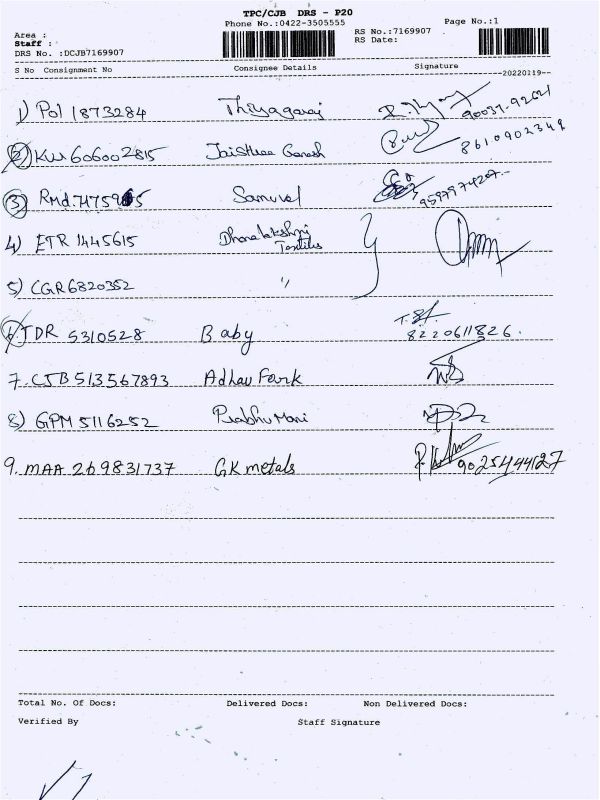 TPC/CJB DRS - P20
Phone No.:0422-3505555
Page No.:1
Area :
RS No.:7169907
Staff :
RS Date:
DRS No. :DCJB7169907
S No Consignment No Consignee Details Signature
20220119--
1) Pol 1873284 Thiyagaraj
90037-92621
2) KUU 606002815 Jaishree Ganesh 8610902349
3) RMd. 7175965 Samuval 9597974207
4) ETR 1445615 Dhanalakshmi Textiles
5) CGR6820352 "
6) TDR 5310528 Baby 8220611826.
7. CJB 513567893 Adhav Fark
8) GPM 5116252 Prabhu Mani
9. MAA 269831737 GK metals 9025444127
Total No. Of Docs: Delivered Docs: Non Delivered Docs:
Verified By Staff Signature